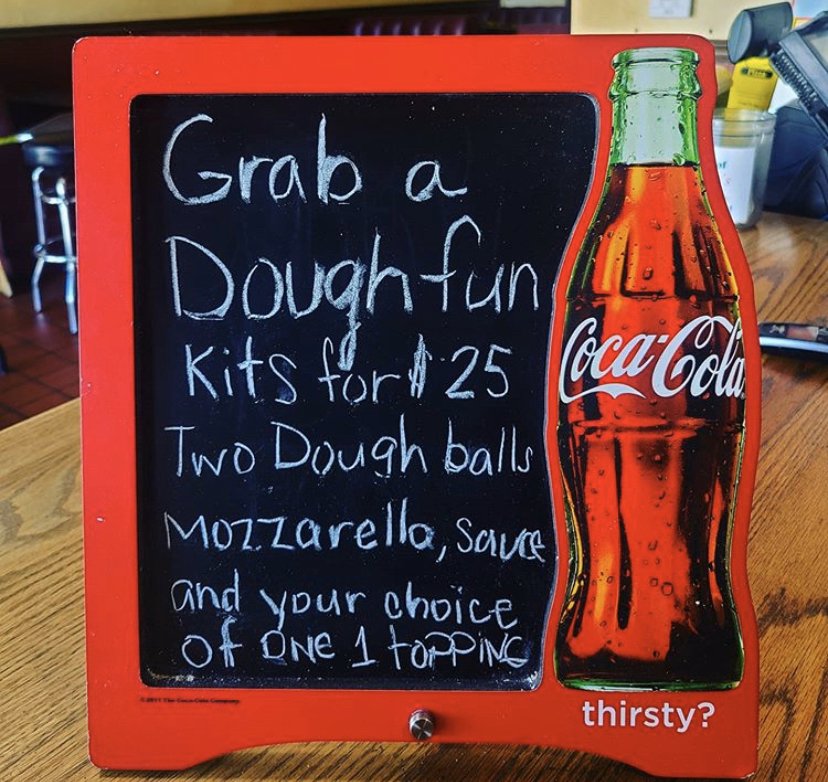 Grab a
Doughfun
Kits for $25
Two Dough balls
Mozzarella, sauce
and your choice
of ONE 1 TOPPING
Coca-Cola
thirsty?
©2011 The Coca-Cola Company.